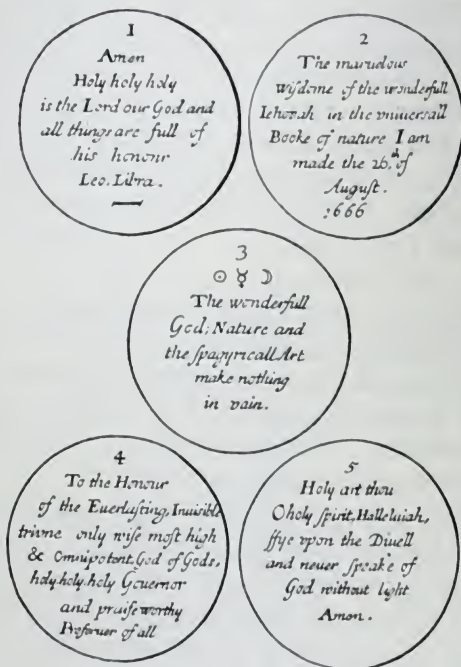 1
Amen
Holy holy holy
is the Lord our God and
all things are full of
his honour
Leo. Libra.
2
The marvelous
wÿdome of the wonderfull
Iehovah in the vniversall
Booke of nature I am
made the 26.th of
August.
1666
3
☉ ☿ ☽
The wonderfull
God; Nature and
the ſpagyricall Art
make nothing
in vain.
4
To the Honour
of the Euerlaſting, Inuiſible
trivne only wiſe moſt high
& Omnipotent, God of Gods,
holy, holy, holy Governor
and praiſeworthy
Preſeruer of all
5
Holy art thou
O holy ſpirit, Halleluiah,
ffye vpon the Divell
and never ſpeake of
God without light
Amen.